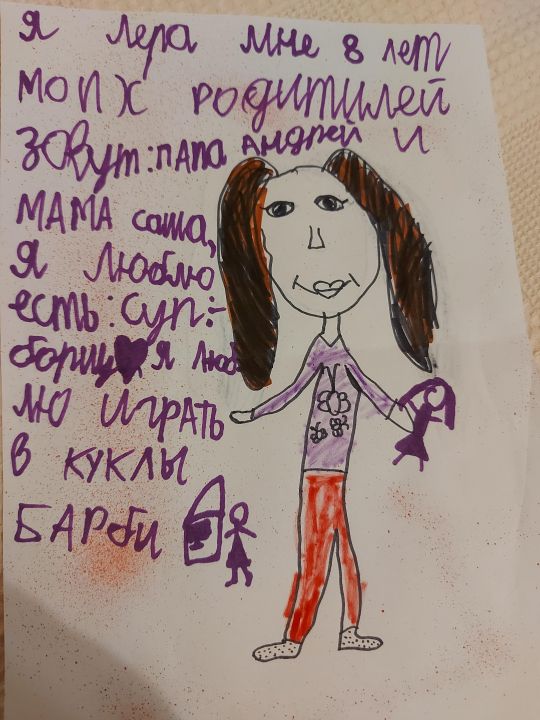 Я Лера мне 8 лет
моих родитилей
зовут: папа Анджей и
мама саша,
я люблю
есть: суп:-
борщ я люб
лю играть
в куклы
Барби